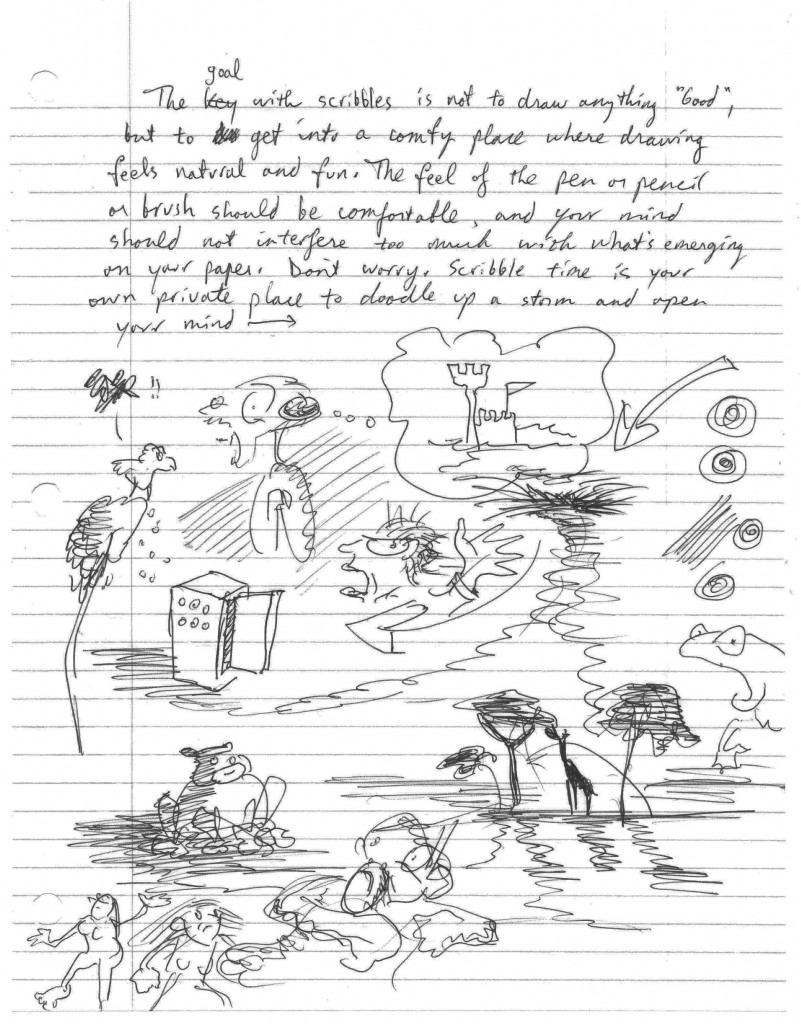 goal
The key with scribbles is not to draw anything "Good",
but to get into a comfy place where drawing
feels natural and fun. The feel of the pen or pencil
or brush should be comfortable, and your mind
should not interfere too much with what's emerging
on your paper. Don't worry. Scribble time is your
own private place to doodle up a storm and open
your mind →
!!